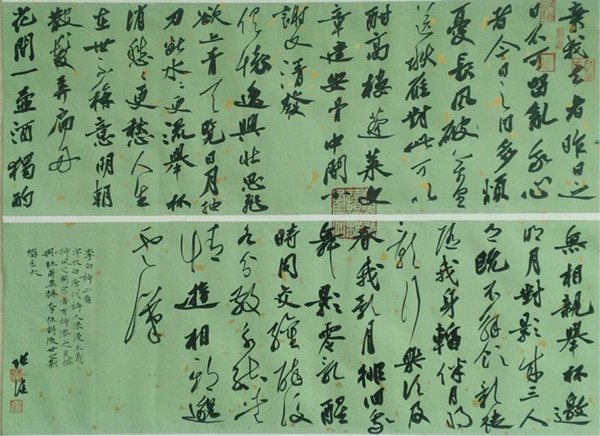 棄我去者昨日之
日不可留亂我心
者今日之日多煩
憂長風破萬里
送秋雁對此可以
酣高樓蓬萊文
章建安骨中間小
謝又清發
俱懷逸興壯思飛
欲上青天覽日月抽
刀斷水水更流舉杯
消愁愁更愁人生
在世不稱意明朝
散髮弄扁舟
花間一壺酒獨酌
無相親舉杯邀
明月對影成三人
月既不解飲影徒
隨我身暫伴月將
影行樂須及
春我歌月徘徊我
舞影零亂醒
時同交歡醉後
各分散永結無
情遊相期邈
雲漢
李白詩二首
字太白唐代詩人浪漫主義
與杜甫並稱李杜詩